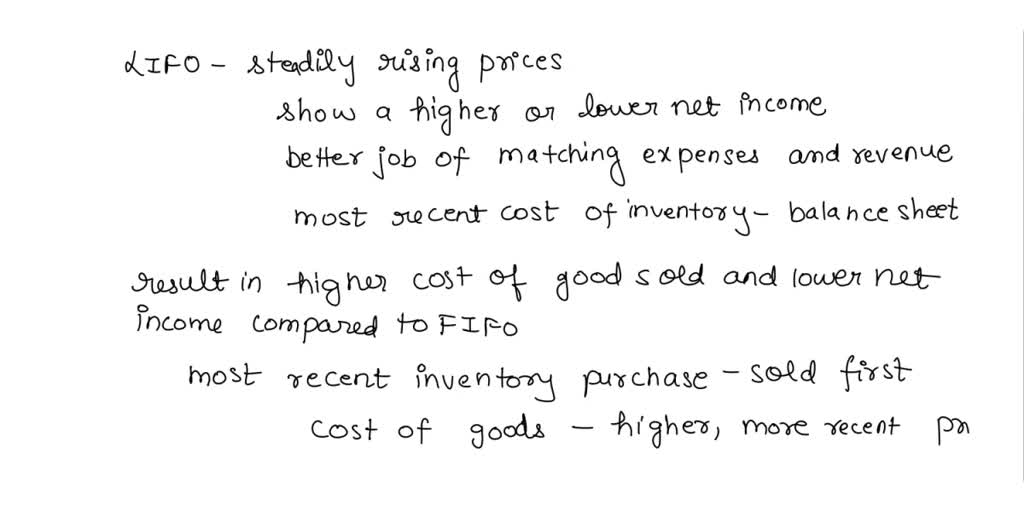 LIFO - steadily rising prices
show a higher or lower net income
better job of matching expenses and revenue
most recent cost of inventory - balance sheet
result in higher cost of good sold and lower net
income compared to FIFO
most recent inventory purchase - sold first
cost of goods - higher, more recent pr